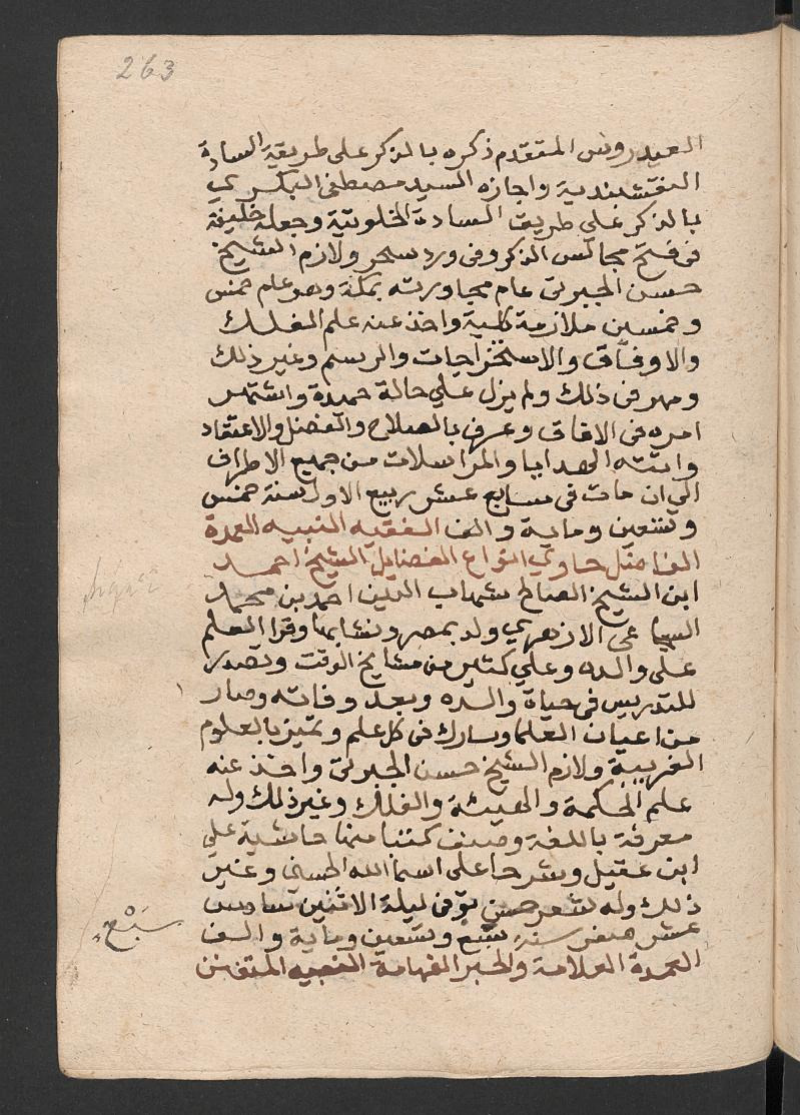 263
العيدروس المتقدم ذكره بالذكر على طريقة السادة
النقشبندية واجازه السيد مصطفى البكري
بالذكر على طريق السادة الخلوتية وجعله خليفة
فى فتح مجالس الذكر وفى ورد سحر ولازم الشيخ
حسن الجبرتى عام مجاورته بمكة وهو عام خمس
وخمسين ملازمة كلية واخذ عنه علم الفلك
والاوفاق والاستخراجات والرسم وغير ذلك
ومهر فى ذلك ولم يزل على حالة حميدة واشتهر
امره فى الافاق وعرف بالصلاح والفضل والاعتقاد
واتته الهدايا والمراسلات من جميع الاطراف
الى ان مات فى سابع عشر ربيع الاول سنة خمس
وتسعين وماية والف الفقيه النبيه العمدة
الفاضل حاوي انواع الفضايل الشيخ احمد
ابن الشيخ الصالح شهاب الدين احمد بن محمد
السجاعى الازهري ولد بمصر ونشا بها وقرا العلم
على والده وعلي كثير من مشايخ الوقت وتصدر
للتدريس فى حياة والده وبعد وفاته وصار
من اعيان العلما وشارك فى كل علم وتميز بالعلوم
الغريبة ولازم الشيخ حسن الجبرتى واخذ عنه
علم الحكمة والهيئة والفلك وغير ذلك وله
معرفة باللغة وصنف كتبا منها حاشية علي
ابن عقيل وشرحا على اسما الله الحسنى وغير
ذلك وله شعر حسن توفى ليلة الاثنين سادس
عشر صفر سنة سبع وتسعين وماية والف
سبع
العمدة العلامة والحبر الفهامة النبيه المتفنن